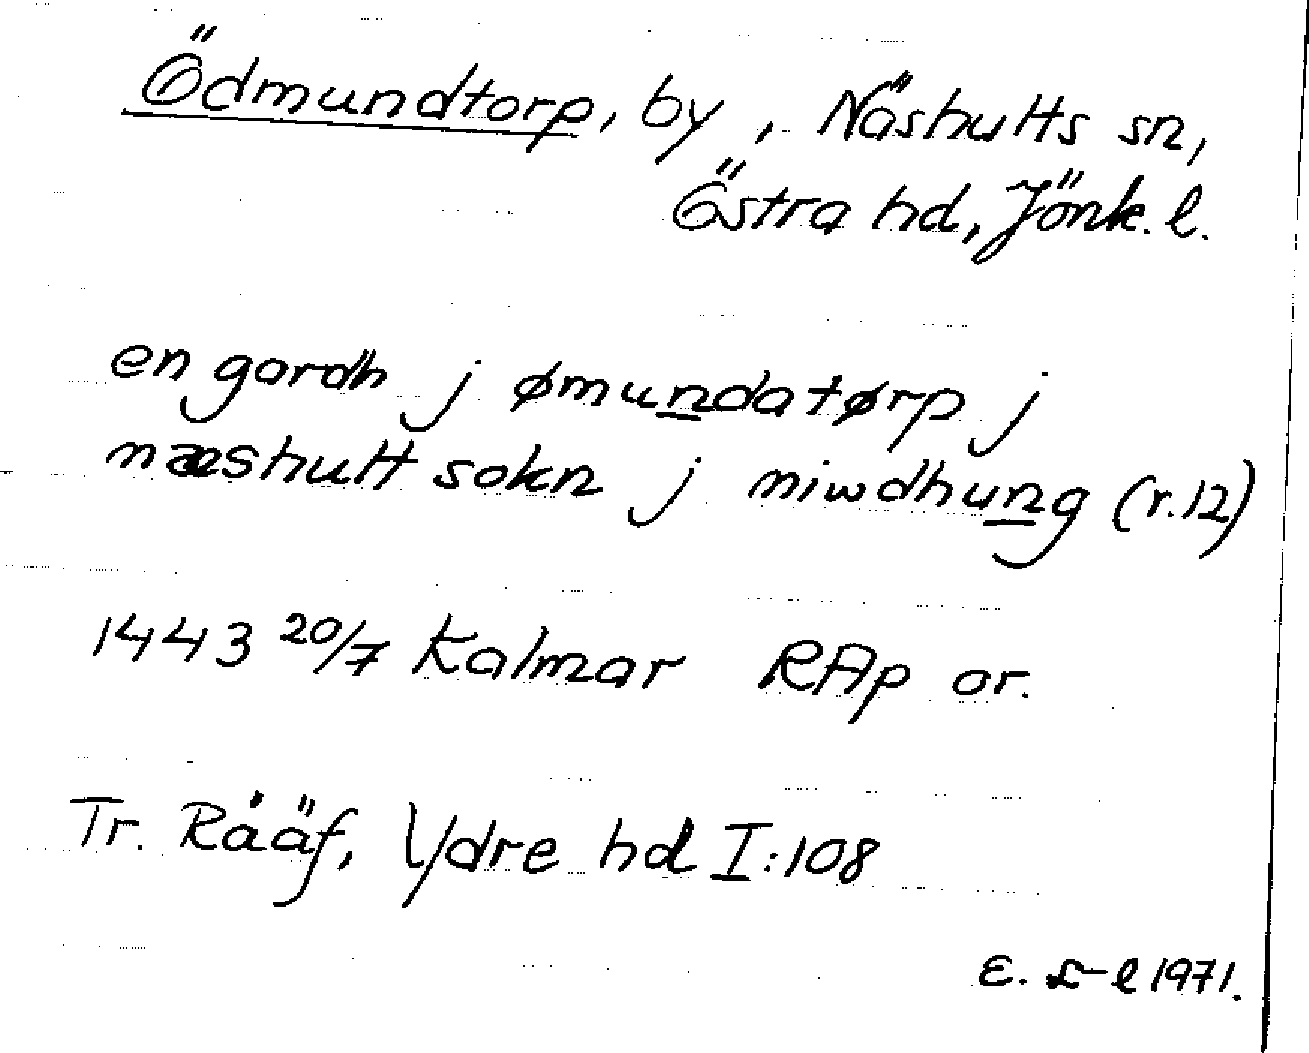 Ödmundtorp, by, Näshults sn,
Östra hd, Jönk. l.
en gardh j ømundatørp j
næshult sokn j niwdhung (r.12)
1443 20/7 Kalmar RAp or.
Tr. Rääf, Ydre hd I:108
E. L-l 1971.